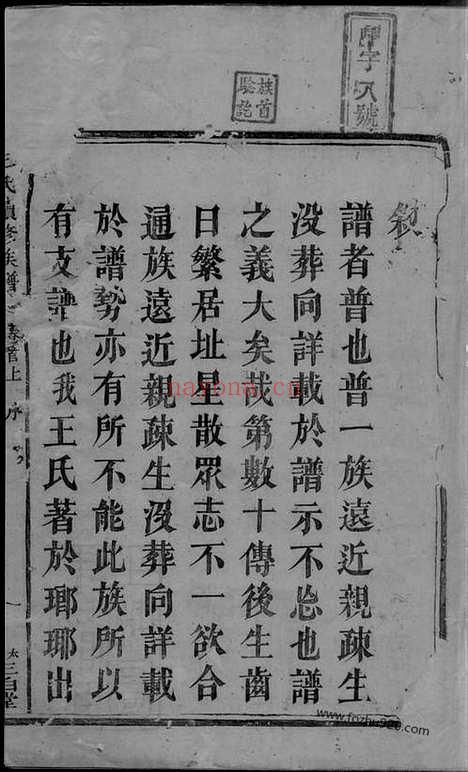 敘
譜者普也普一族遠近親疎生
没葬向詳載於譜示不忘也譜
之義大矣哉第數十傳後生齒
日繁居址星散眾志不一欲合
通族遠近親疎生没葬向詳載
於譜勢亦有所不能此族所以
有支譜也我王氏著於瑯琊出
王氏續修族譜 卷首上 序 一 太三百堂
字八號
族首
驗訖
nayona.cn
www.fozhu920.com